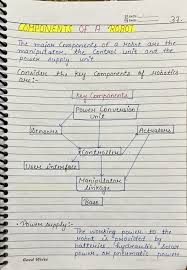 37.
COMPONENTS OF A ROBOT
The major components of a robot are the
manipulator, the control unit and the
power supply unit.
Consider the key Components of robotics
are:-
Key Components
Power Conversion
Unit
Sensors
Actuators
Controller
User interface
Manipulator
linkage
Base
• Power supply:-
The working power to the
robot is provided by
batteries, hydraulic, solar
power, or pneumatic power
Good Writes